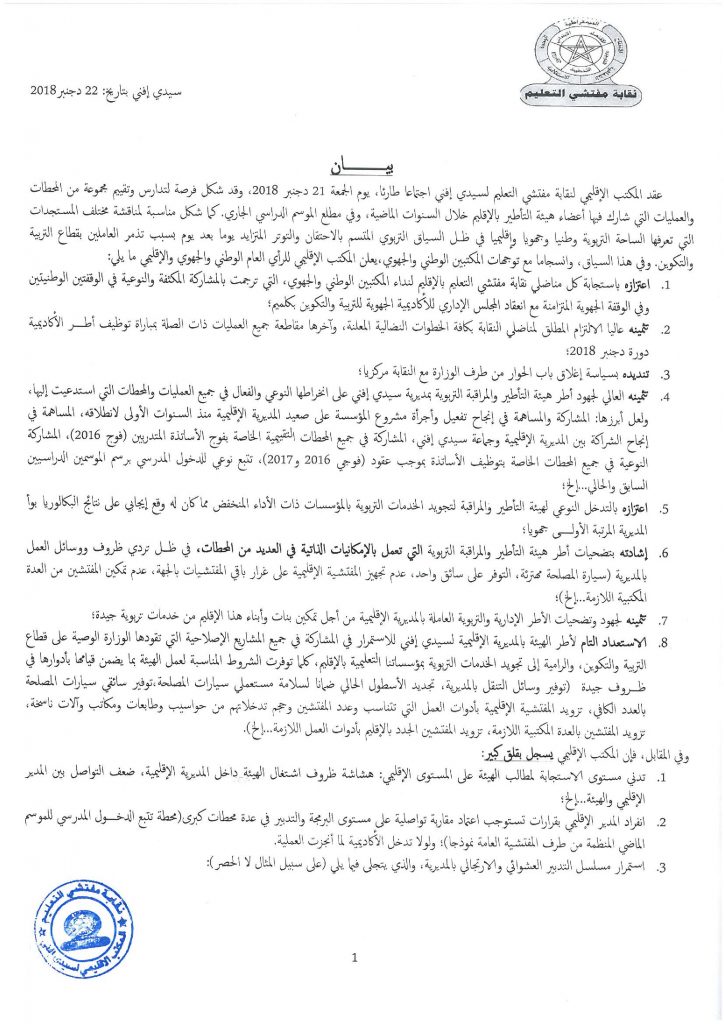 نقابة مفتشي التعليم
سيدي إفني بتاريخ: 22 دجنبر 2018
بيـــــان
عقد المكتب الإقليمي لنقابة مفتشي التعليم لسيدي إفني اجتماعا طارئا، يوم الجمعة 21 دجنبر 2018، وقد شكل فرصة لتدارس وتقييم مجموعة من المحطات
والعمليات التي شارك فيها أعضاء هيئة التأطير بالإقليم خلال السنوات الماضية، وفي مطلع الموسم الدراسي الجاري. كما شكل مناسبة لمناقشة مختلف المستجدات
التي تعرفها الساحة التربوية وطنيا وجهويا وإقليميا في ظل السياق التربوي المتسم بالاحتقان والتوتر المتزايد يوما بعد يوم بسبب تذمر العاملين بقطاع التربية
والتكوين. وفي هذا السياق، وانسجاما مع توجهات المكتبين الوطني والجهوي،يعلن المكتب الإقليمي للرأي العام الوطني والجهوي والإقليمي ما يلي:
1. اعتزازه باستجابة كل مناضلي نقابة مفتشي التعليم بالإقليم لنداء المكتبين الوطني والجهوي، التي ترجمت بالمشاركة المكثفة والنوعية في الوقفتين الوطنيتين
وفي الوقفة الجهوية المتزامنة مع انعقاد المجلس الإداري للأكاديمية الجهوية للتربية والتكوين بكلميم؛
2. تثمينه عاليا الالتزام المطلق لمناضلي النقابة بكافة الخطوات النضالية المعلنة، وآخرها مقاطعة جميع العمليات ذات الصلة بمباراة توظيف أطـــر الأكاديمية
دورة دجنبر 2018؛
3. تنديده بسياسة إغلاق باب الحوار من طرف الوزارة مع النقابة مركزيا؛
4. تثمينه العالي لجهود أطر هيئة التأطير والمراقبة التربوية بمديرية سيدي إفني على انخراطها النوعي والفعال في جميع العمليات والمحطات التي استدعيت إليها،
ولعل أبرزها: المشاركة والمساهمة في إنجاح تفعيل وأجرأة مشروع المؤسسة على صعيد المديرية الإقليمية منذ السنوات الأولى لانطلاقه، المساهمة في
إنجاح الشراكة بين المديرية الإقليمية وجماعة سيدي إفني، المشاركة في جميع المحطات التقييمية الخاصة بفوج الأساتذة المتدربين (فوج 2016)، المشاركة
النوعية في جميع المحطات الخاصة بتوظيف الأساتذة بموجب عقود (فوجي 2016 و2017)، تتبع نوعي للدخول المدرسي برسم الموسمين الدراسيين
السابق والحالي...إلخ؛
5. اعتزازه بالتدخل النوعي لهيئة التأطير والمراقبة لتجويد الخدمات التربوية بالمؤسسات ذات الأداء المنخفض مما كان له وقع إيجابي على نتائج البكالوريا بوأ
المديرية المرتبة الأولـــى جهويا؛
6. إشادته بتضحيات أطر هيئة التأطير والمراقبة التربوية التي تعمل بالإمكانيات الذاتية في العديد من المحطات، في ظل تردي ظروف ووسائل العمل
بالمديرية (سيارة المصلحة مهترئة، التوفر على سائق واحد، عدم تجهيز المفتشية الإقليمية على غرار باقي المفتشيات بالجهة، عدم تمكين المفتشين من العدة
المكتبية اللازمة...إلخ)؛
7. تثمينه لجهود وتضحيات الأطر الإدارية والتربوية العاملة بالمديرية الإقليمية من أجل تمكين بنات وأبناء هذا الإقليم من خدمات تربوية جيدة؛
8. الاستعداد التام لأطر الهيئة بالمديرية الإقليمية لسيدي إفني للاستمرار في المشاركة في جميع المشاريع الإصلاحية التي تقودها الوزارة الوصية على قطاع
التربية والتكوين، والرامية إلى تجويد الخدمات التربوية بمؤسساتنا التعليمية بالإقليم،كلما توفرت الشروط المناسبة لعمل الهيئة بما يضمن قيامها بأدوارها في
ظـــروف جيدة (توفير وسائل التنقل بالمديرية، تجديد الأسطول الحالي ضمانا لسلامة مستعملي سيارات المصلحة،توفير سائقي سيارات المصلحة
بالعدد الكافي، تزويد المفتشية الإقليمية بأدوات العمل التي تتناسب وعدد المفتشين وحجم تدخلاتهم من حواسيب وطابعات ومكاتب وآلات ناسخة،
تزويد المفتشين بالعدة المكتبية اللازمة، تزويد المفتشين الجدد بالإقليم بأدوات العمل اللازمة...إلخ).
وفي المقابل، فإن المكتب الإقليمي يسجل بقلق كبير:
1. تدني مستوى الاستجابة لمطالب الهيئة على المستوى الإقليمي: هشاشة ظروف اشتغال الهيئة داخل المديرية الإقليمية، ضعف التواصل بين المدير
الإقليمي والهيئة...إلخ؛
2. انفراد المدير الإقليمي بقرارات تستوجب اعتماد مقاربة تواصلية على مستوى البرمجة والتدبير في عدة محطات كبرى(محطة تتبع الدخـــول المدرسي للموسم
الماضي المنظمة من طرف المفتشية العامة نموذجا)؛ ولولا تدخل الأكاديمية لما أنجزت العملية.
3. استمرار مسلسل التدبير العشوائي والارتجالي بالمديرية، والذي يتجلى فيما يلي (على سبيل المثال لا الحصر):
نقابة مفتشي التعليم
المكتب الإقليمي لسيدي افني
1